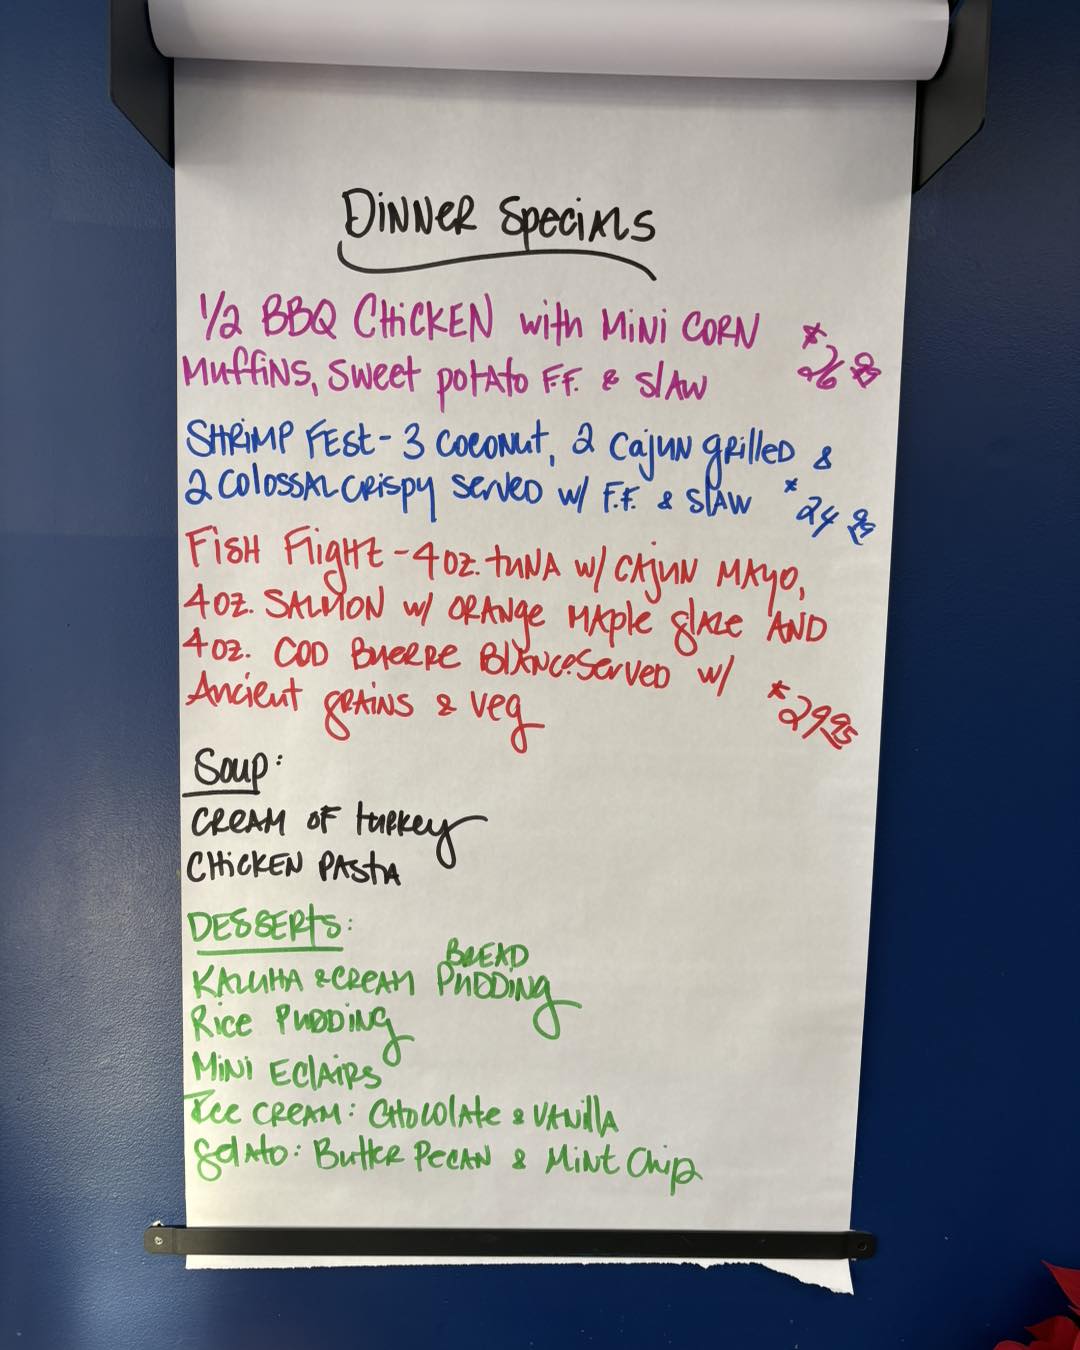 Dinner Specials
1/2 BBQ Chicken with Mini Corn
Muffins, Sweet potato F.F. & Slaw $26
Shrimp Fest - 3 Coconut, 2 Cajun grilled &
2 Colossal Crispy served w/ F.F. & Slaw $24 95
Fish Flight - 4oz. tuna w/ Cajun Mayo,
4oz. Salmon w/ Orange Maple glaze AND
4oz. Cod Buerre Blance. Served w/
Ancient grains & Veg $29 95
Soup:
Cream of turkey
Chicken Pasta
Desserts:
Kaluha & Cream Bread Pudding
Rice Pudding
Mini Eclairs
Ice Cream: Chocolate & Vanilla
Gelato: Butter Pecan & Mint Chip